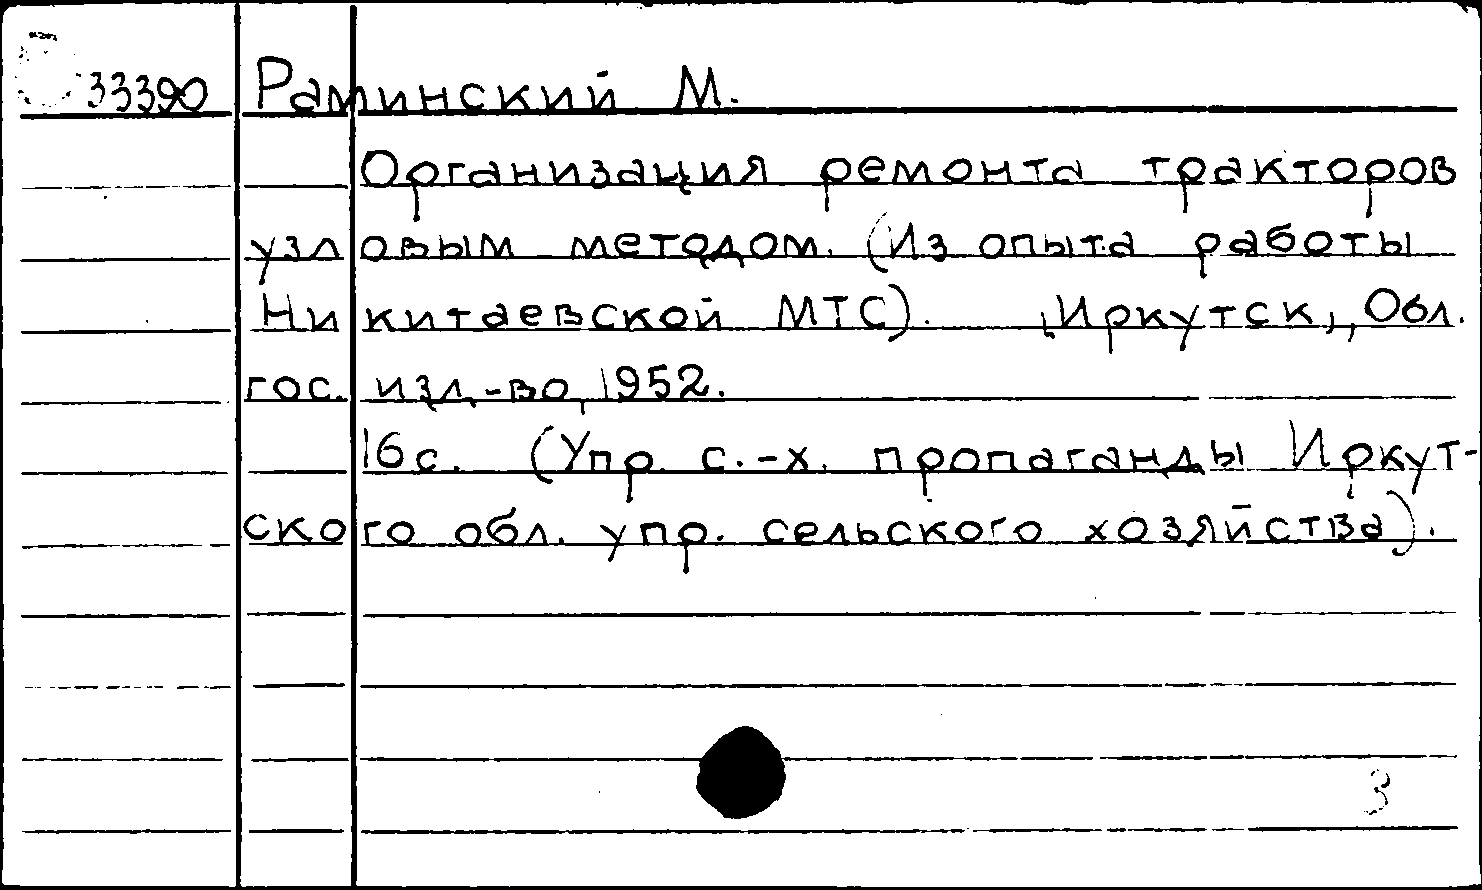 33390 Раминский М.
Организация ремонта тракторов
узловым методом. (Из опыта работы
Никитаевской МТС). [Иркутск], Обл.
гос. изд-во, 1952.
16 с. (Упр. с.-х. пропаганды Иркут-
ского обл. упр. сельского хозяйства).
3